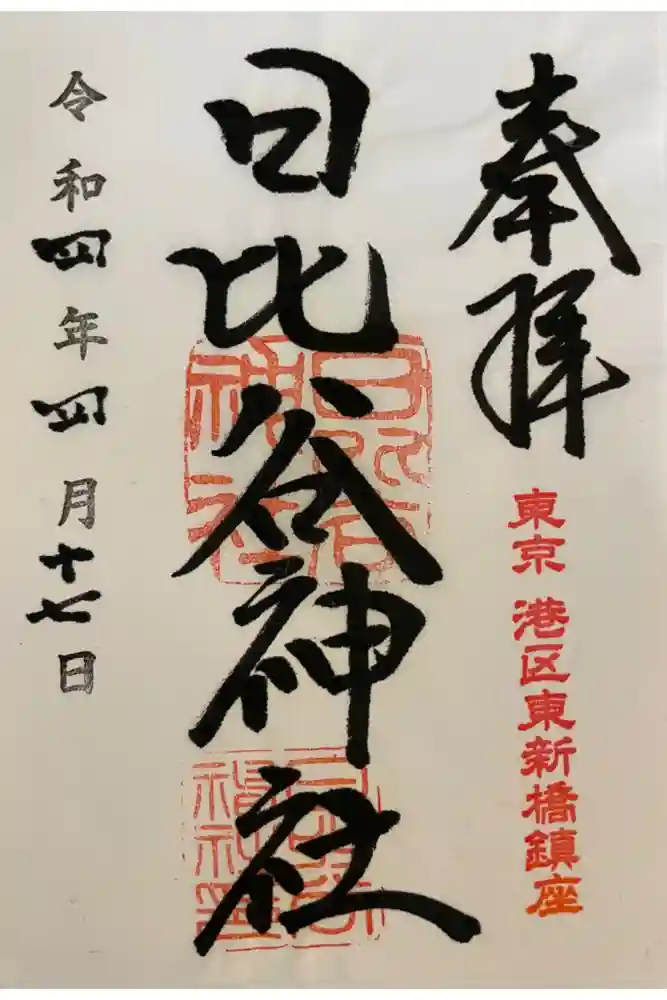 奉拝
東京 港区東新橋鎮座
日比谷神社
日比谷神社
令和四年四月十七日